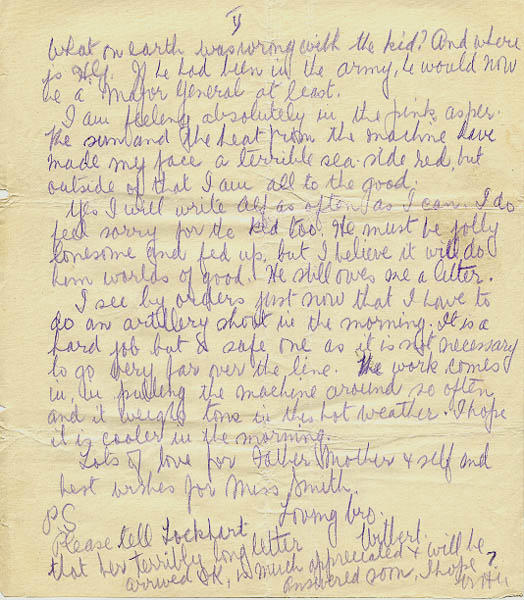 V
What on earth was wrong with the kid? And where
is Alf. If he had been in the army, he would now
be a Major General at least.
I am feeling absolutely in the pink, as per.
The sun and the heat from the machine have
made my face a terrible sea-side red, but
outside of that I am all to the good.
Yes I will write Alf as often as I can. I do
feel sorry for the kid too. He must be jolly
lonesome and fed up, but I believe it will do
him worlds of good. He still owes me a letter.
I see by orders just now that I have to
do an artillery shoot in the morning. It is a
hard job but a safe one as it is not necessary
to go very far over the line. The work comes
in, in pulling the machine around so often
and it weighs tons in this hot weather. I hope
it is cooler in the morning.
Lots of love for Father Mother & self and
best wishes for Miss Smith.
Loving bro.
PS
Please tell Lockhart
that her terribly long letter
arrived OK, is much appreciated & will be
answered soon, I hope?